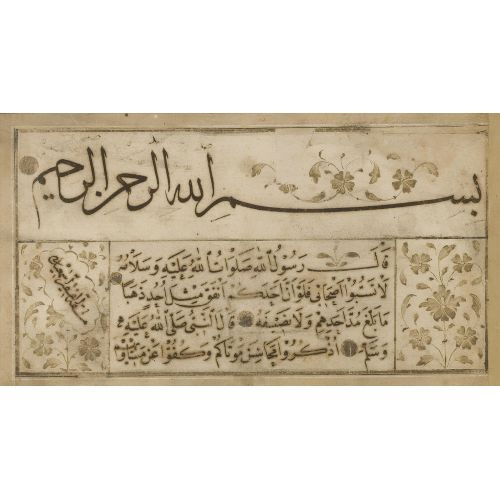 بسم الله الرحمن الرحيم
قال رسول الله صلوات الله عليه وسلامه
لا تسبوا اصحابي فلو ان احدكم انفق مثل احد ذهبا
ما بلغ مد احدهم ولا نصيفه قال النبي صلى الله عليه
وسلم اذكروا محاسن موتاكم وكفوا عن مساويهم